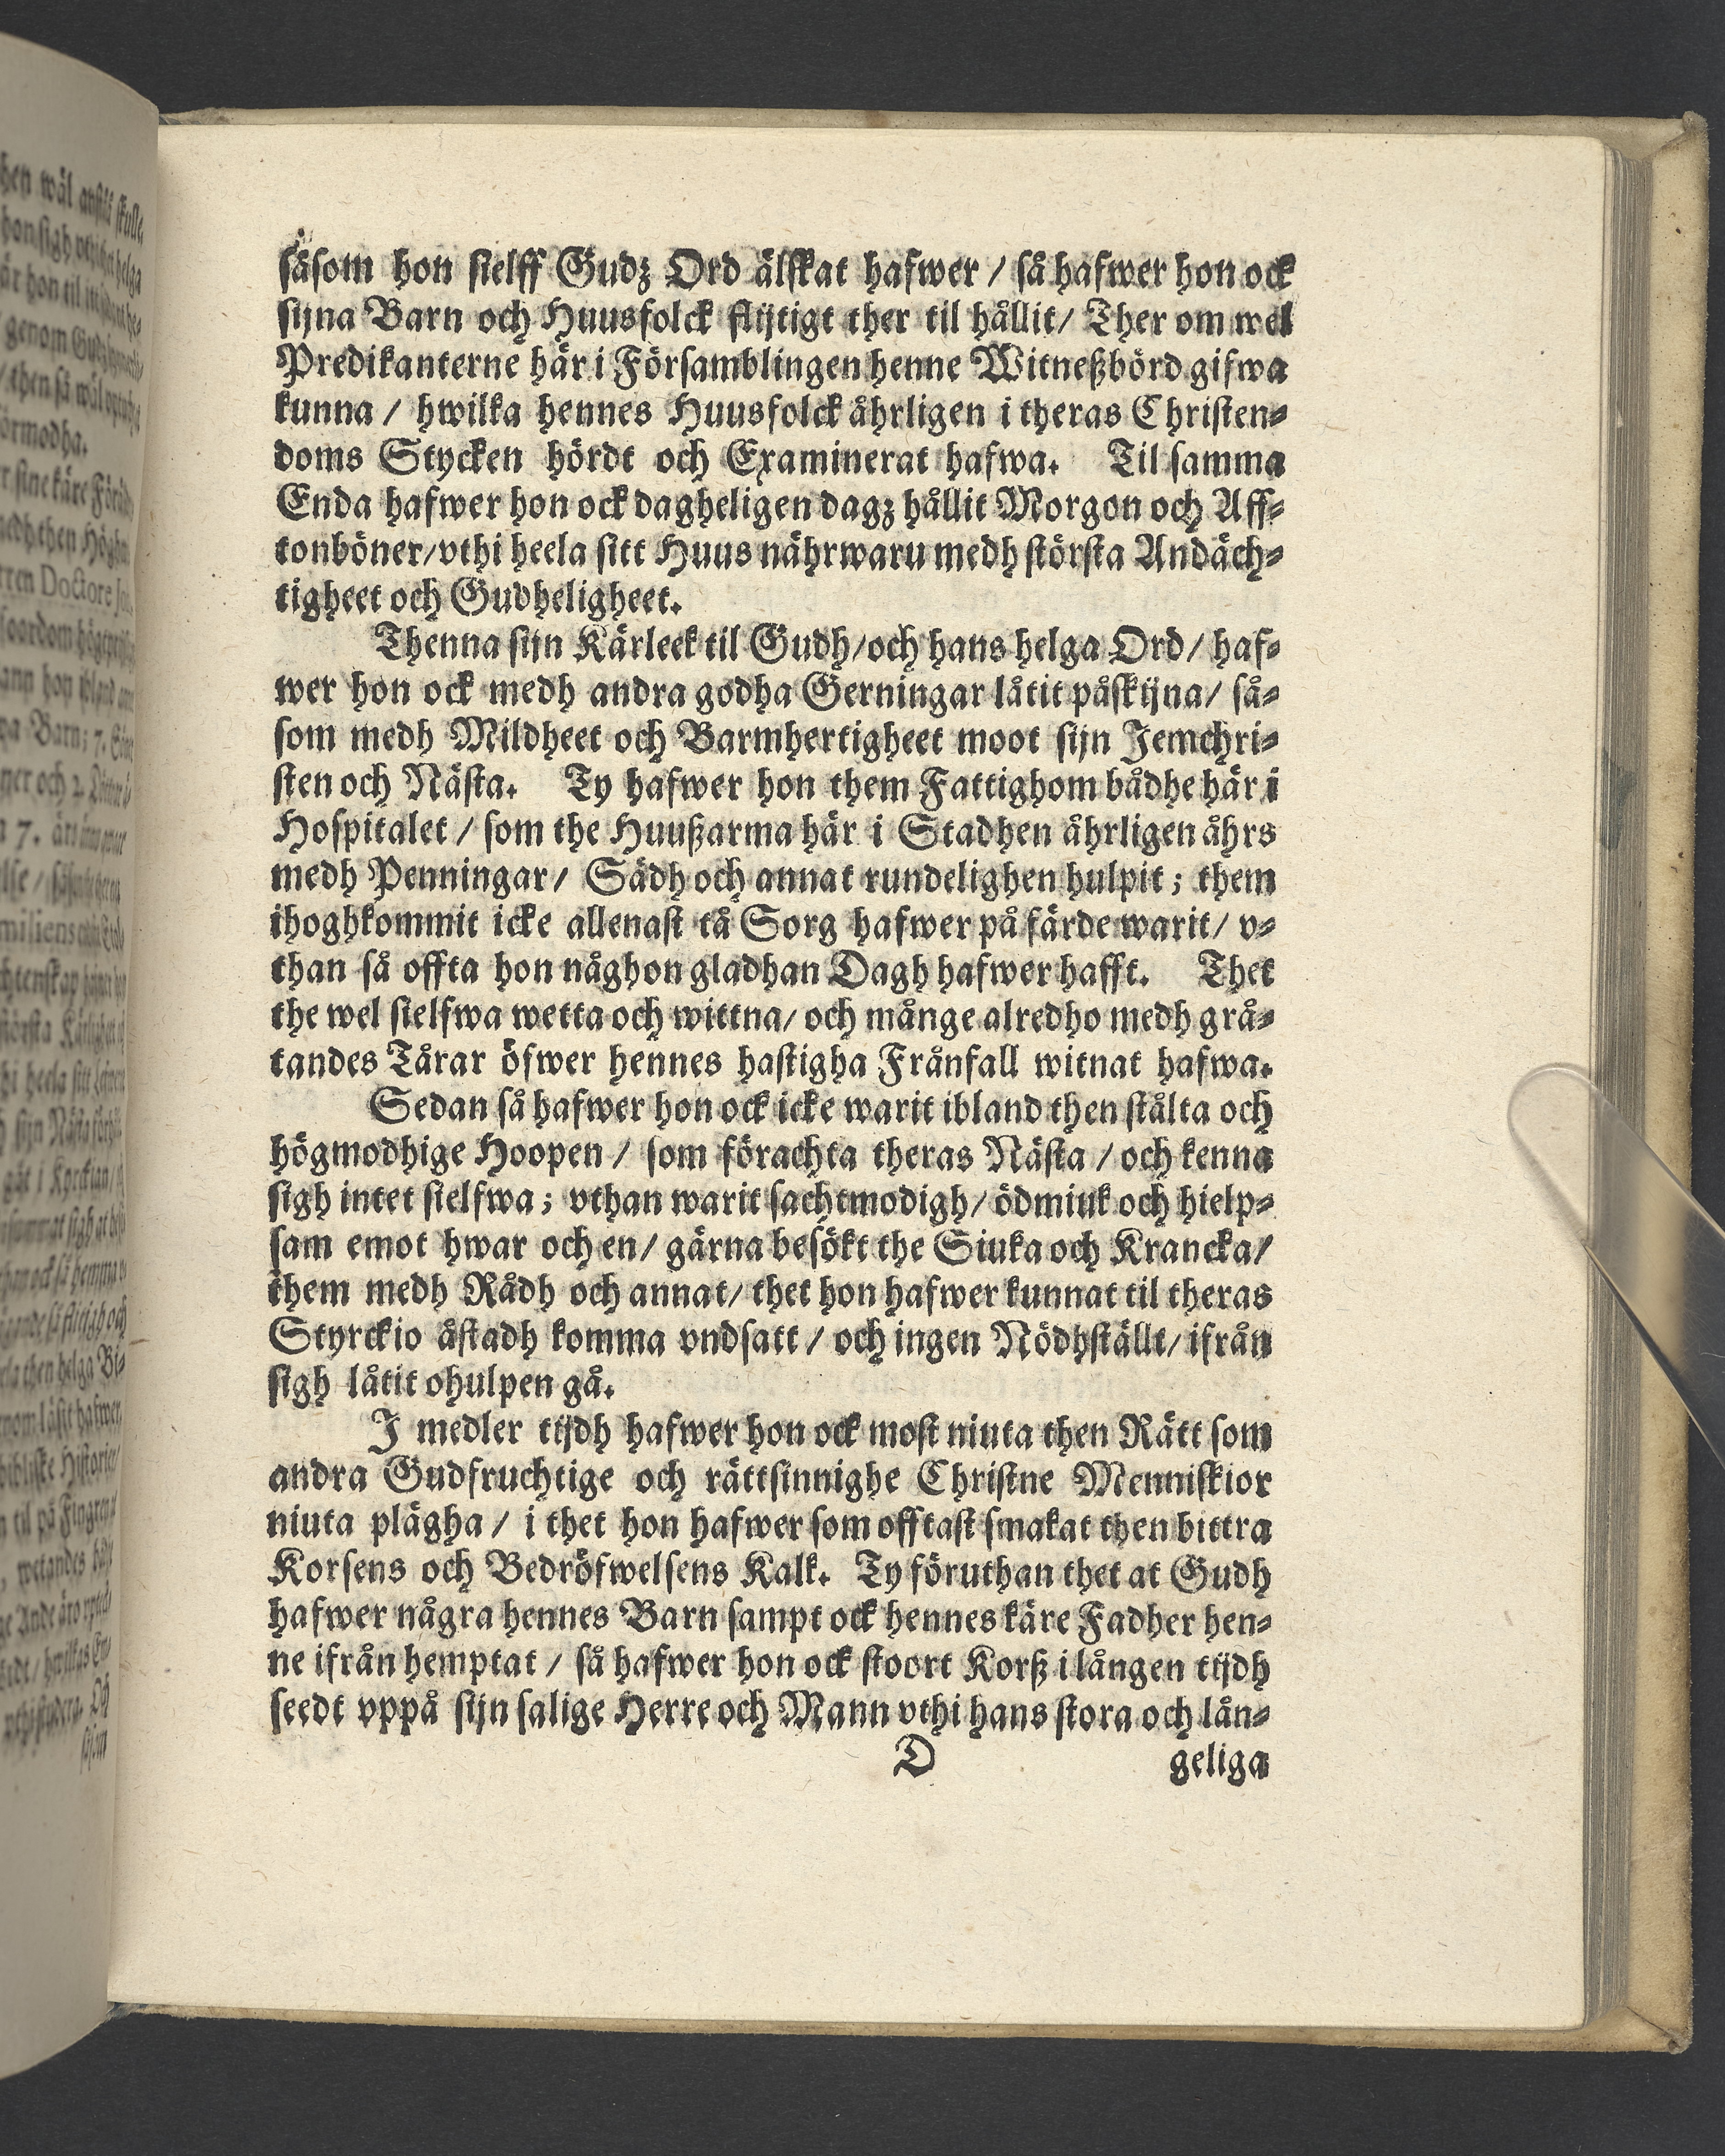 såsom hon sielff Gudz Ord älskat hafwer / så hafwer hon ock
sijna Barn och Huusfolck flijtigt ther til hållit / Ther om wel
Predikanterne här i Församblingen henne Witneßbörd gifwa
kunna / hwilka hennes Huusfolck åhrligen i theras Christen-
doms Stycken hördt och Examinerat hafwa. Til samma
Enda hafwer hon ock dagheligen dagz hållit Morgon och Aff-
tonböner / vthi heela sitt Huus nährwaru medh största Andäch-
tigheet och Gudheligheet.
Thenna sijn Kärleek til Gudh / och hans helga Ord / haf-
wer hon ock medh andra godha Gerningar låtit påskijna / så-
som medh Mildheet och Barmhertigheet moot sijn Jemchri-
sten och Nästa. Ty hafwer hon them Fattighom bådhe här i
Hospitalet / som the Huußarma här i Stadhen åhrligen åhrs
medh Penningar / Sädh och annat rundelighen hulpit ; them
ihoghkommit icke allenast tå Sorg hafwer på färde warit / v-
than så offta hon någhon gladhan Dagh hafwer hafft. Thet
the wel sielfwa wetta och wittna / och månge alredho medh grå-
tandes Tårar öfwer hennes hastigha Frånfall witnat hafwa.
Sedan så hafwer hon ock icke warit ibland then stålta och
högmodhige Hoopen / som förachta theras Nästa / och kenna
sigh intet sielfwa ; vthan warit sachtmodigh / ödmiuk och hielp-
sam emot hwar och en / gärna besökt the Siuka och Krancka /
them medh Rådh och annat / thet hon hafwer kunnat til theras
Styrckio åstadh komma vndsatt / och ingen Nödhställt / ifrån
sigh låtit ohulpen gå.
J medler tijdh hafwer hon ock most niuta then Rätt som
andra Gudfruchtige och rättsinnighe Christne Menniskior
niuta plägha / i thet hon hafwer som offtast smakat then bittra
Korsens och Bedröfwelsens Kalk. Ty föruthan thet at Gudh
hafwer några hennes Barn sampt ock hennes käre Fadher hen-
ne ifrån hemptat / så hafwer hon ock stoort Korß i lången tijdh
seedt vppå sijn salige Herre och Mann vthi hans stora och lån-
D geliga